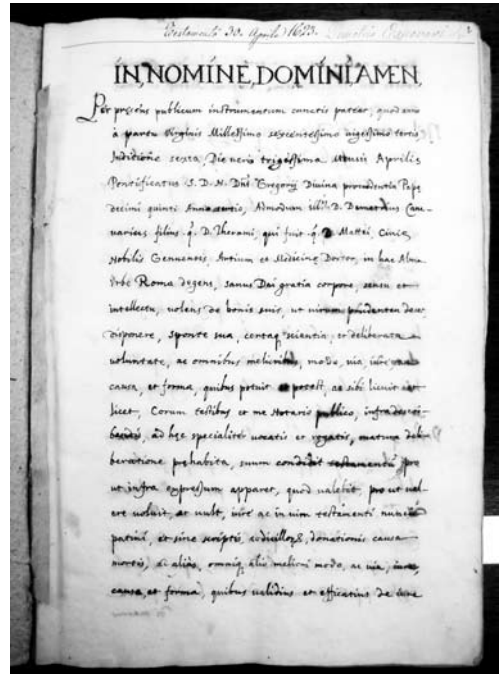 Testamenti 30. Aprile 1623. Demetrio Canevari
IN, NOMINE, DOMINI, AMEN,
Per presens publicum instrumentum cunctis pateat, quod anno
à partu Virginis Millessimo sexcentessimo vigessimo tertio,
Inditione sexta, Die vero trigessima Mensis Aprilis
Pontificatus S. D. N. Dni Gregorij Divina providentia Pape
decimi quinti Anno tertio, Admodum Ill. D. Demetrius Cane-
varius filius q. D. Therami, qui fuit q. D. Mattei, Civis
Nobilis Genuensis, Artium et Medicine Doctor, in hac Alma
Urbe Roma degens, sanus Dei gratia corpore, sensu et
intellectu, volens de bonis suis, ut virum prudentem decet
disponere, sponte sua, certaq scientia, et deliberata
voluntate, ac omnibus melioribus, modo, via, iure
causa, et forma, quibus potuit et potest, ac sibi licuit et
licet, Corum testibus et me Notario publico, infradescri-
ad hec specialiter vocatis et rogatis, matura deli-
beratione prehabita, suum condidit testamentum pro
ut infra expressum apparet, quod valebit, pro ut val-
ere voluit, et vult, iure ac in vim testamenti nuncu-
pativi, et sine scriptis, codicillorum, donationis causa
mortis, ac alias, omniq alio meliori modo, ac via, iure,
causa, et forma, quibus validius et efficatius de iure